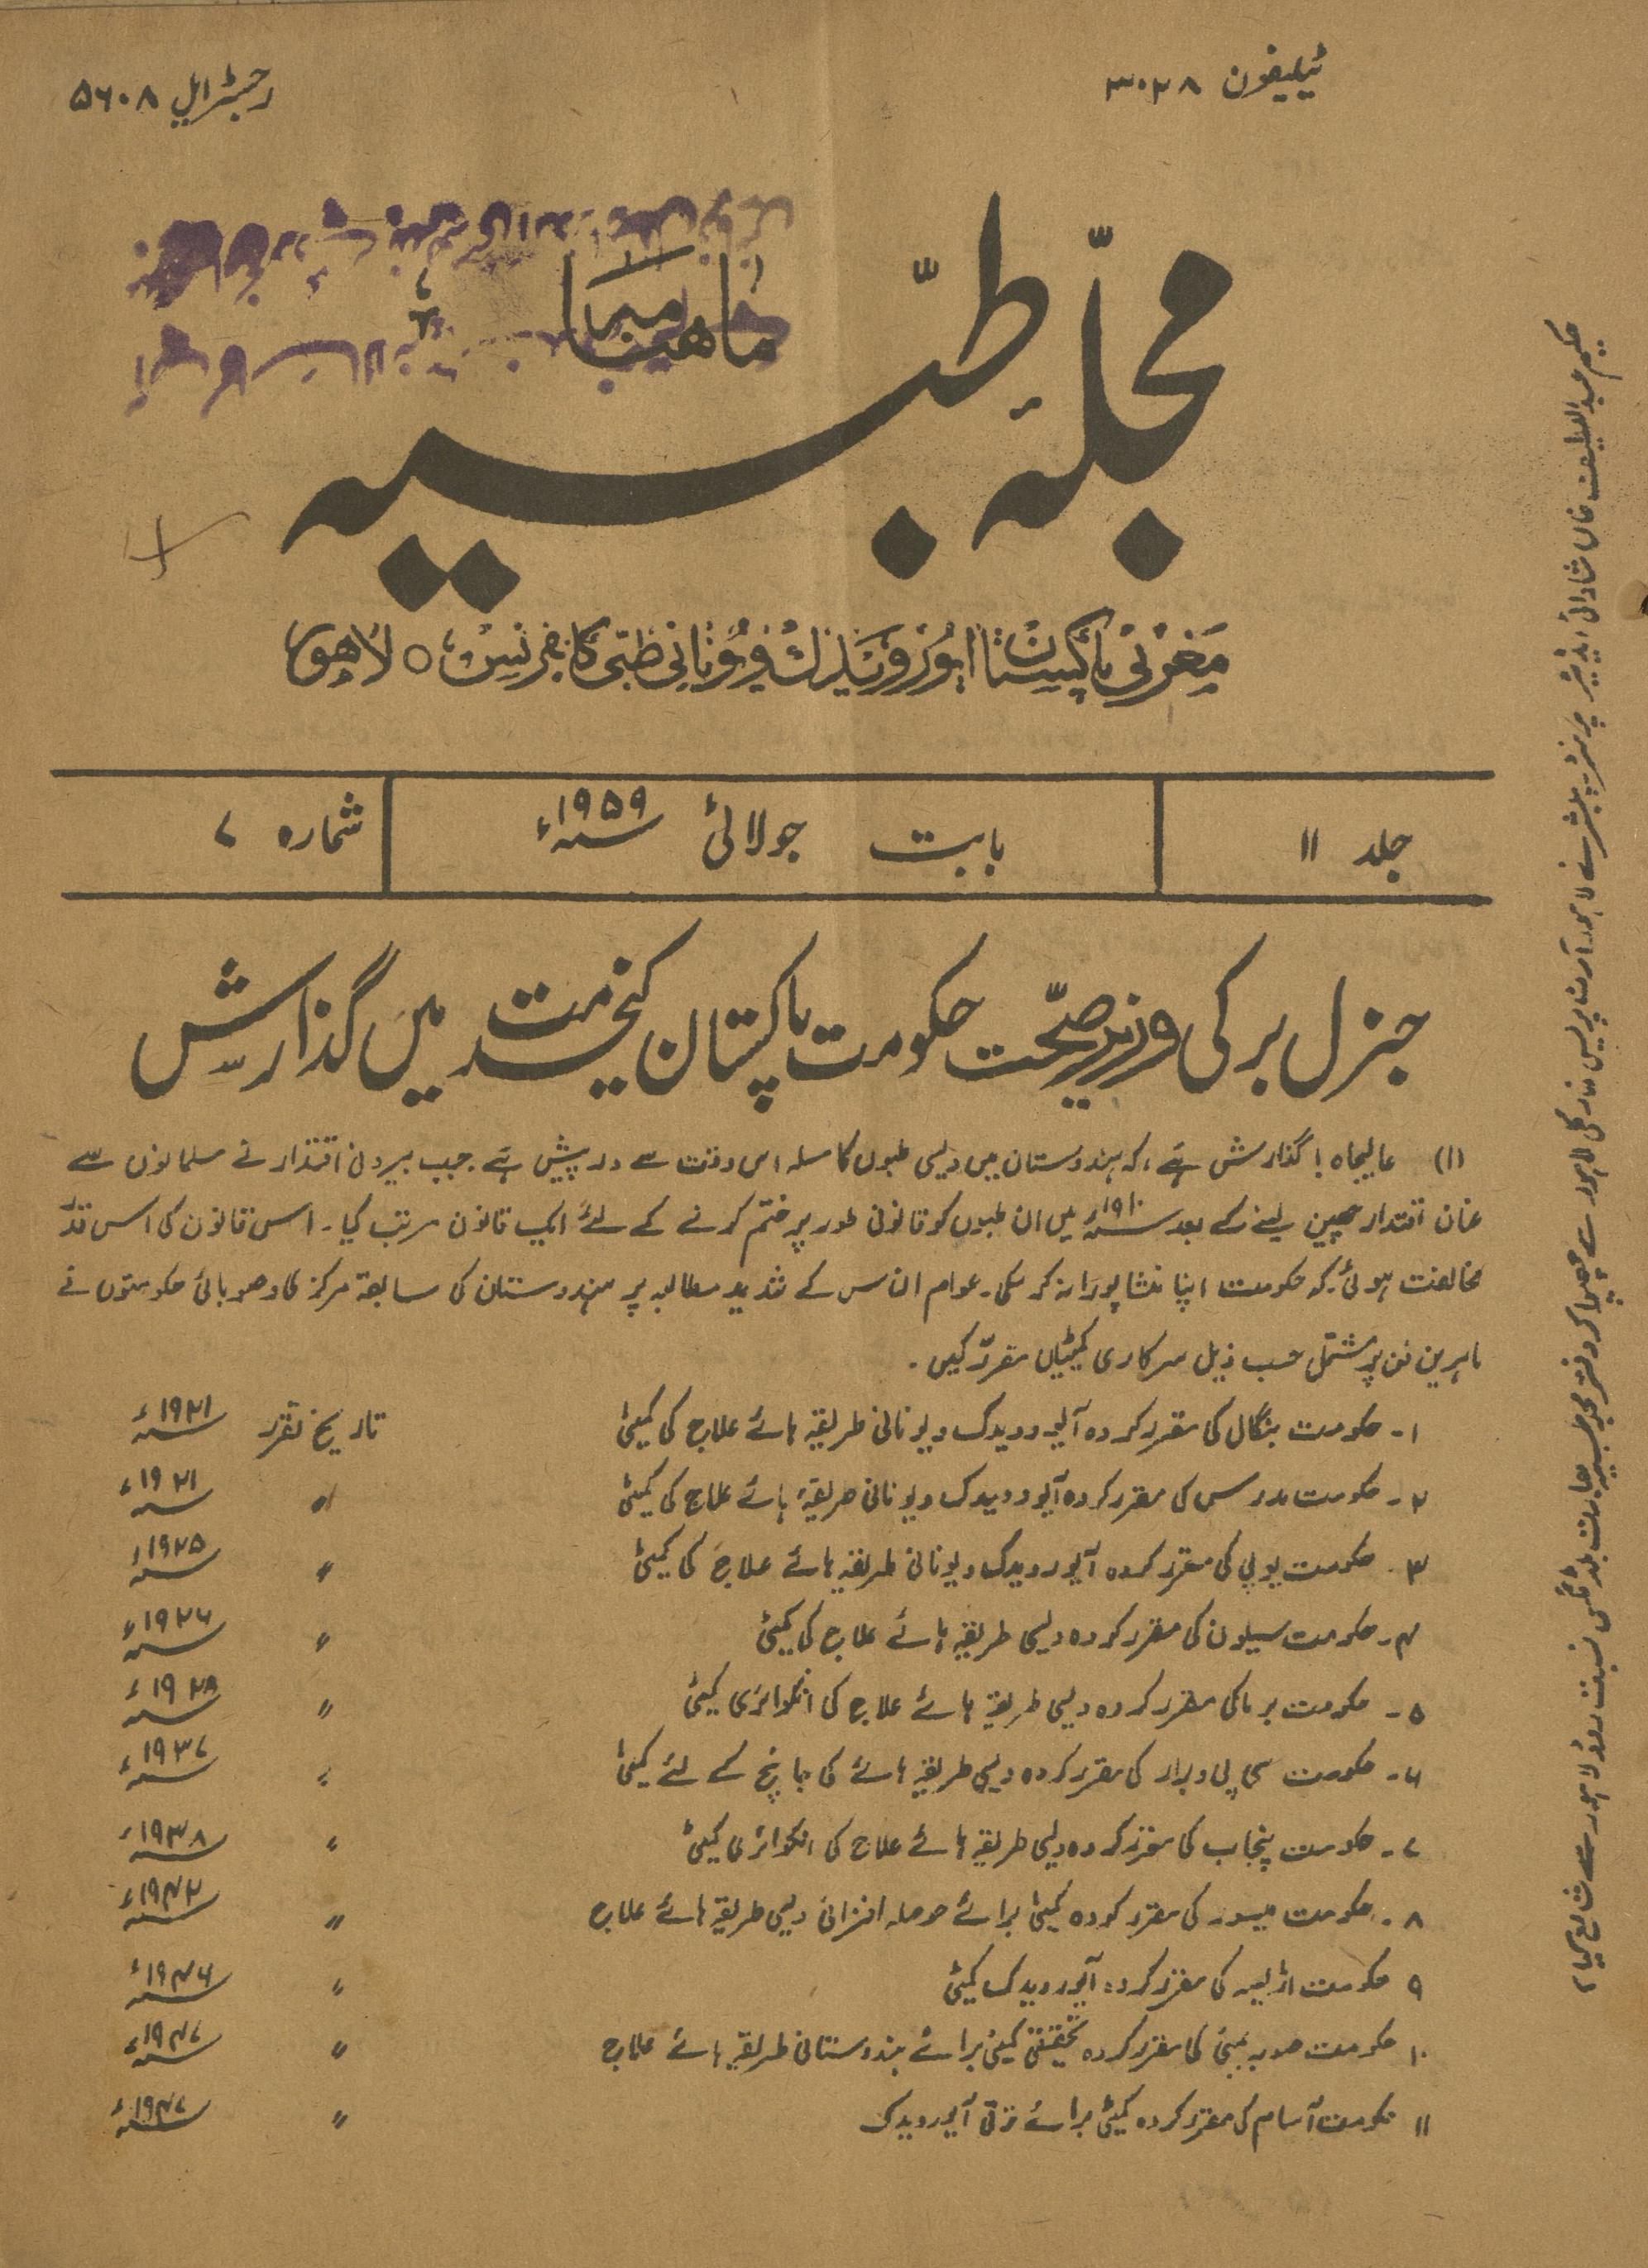 ٹیلیفون ۳۰۲۸
رجسٹرایل ۵۶۰۸
ماھنامہ
مجلّہ طبّیہ
مغربی پاکستان ایورویدک و یونانی طبّی کانفرنس، لاھور
جلد ۱۱
بابت جولائی ۱۹۵۹ء
شمارہ ۷
جنرل برکی وزیر صحّت حکومت پاکستان کیخدمت میں گذارش
(۱) عالیجاہ! گذارش ہے، کہ ہندوستان میں دیسی طبوں کا مسلہ اس وقت سے درپیش ہے۔ جب بیرونی اقتدار نے مسلمانوں سے
عنان اقتدار چھین لینے کے بعد ۱۹۱۰ء میں ان طبوں کو قانونی طور پر ختم کرنے کے لئے ایک قانون مرتب کیا۔ اس قانون کی اس قدر
مخالفت ہوئی، کہ حکومت اپنا منشا پورا نہ کر سکی۔ عوام الناس کے شدید مطالبہ پر ہندوستان کی سابقہ مرکزی وصوبائی حکومتوں نے
ماہرین فن پر مشتمل حسب ذیل سرکاری کمیٹیاں مقرر کیں۔
۱۔ حکومت بنگال کی مقرر کردہ آیورویدک ویونانی طریقہ ہائے علاج کی کمیٹی تاریخ تقرر ۱۹۲۱ء
۲۔ حکومت مدراس کی مقرر کردہ آیورویدک ویونانی طریقہ ہائے علاج کی کمیٹی " ۱۹۲۱ء
۳۔ حکومت یوپی کی مقرر کردہ آیورویدک ویونانی طریقہ ہائے علاج کی کمیٹی " ۱۹۲۵ء
۴۔ حکومت سیلون کی مقرر کردہ دیسی طریقہ ہائے علاج کی کمیٹی " ۱۹۲۶ء
۵۔ حکومت برما کی مقرر کردہ دیسی طریقہ ہائے علاج کی انکوائری کمیٹی " ۱۹۲۸ء
۶۔ حکومت سی پی وبرار کی مقرر کردہ دیسی طریقہ ہائے کی جانچ کے لئے کمیٹی " ۱۹۳۷ء
۷۔ حکومت پنجاب کی مقرر کردہ دیسی طریقہ ہائے علاج کی انکوائری کمیٹی " ۱۹۳۸ء
۸۔ حکومت میسور کی مقرر کردہ کمیٹی برائے حوصلہ افزائی دیسی طریقہ ہائے علاج " ۱۹۴۲ء
۹ حکومت اڑیسہ کی مقرر کردہ آیورویدک کمیٹی " ۱۹۴۶ء
۱۰ حکومت صوبہ بمبئی کی مقرر کردہ تحقیقی کمیٹی برائے ہندوستانی طریقہ ہائے علاج " ۱۹۴۷ء
۱۱ حکومت آسام کی مقرر کردہ کمیٹی برائے ترقی آیورویدک " ۱۹۴۷ء
حکیم عبداللطیف خاں شادانی ایڈیٹر پرنٹر۔پبلشر نے لاہور آرٹ پریس انارکلی لاہور سے چھپوا کر دفتر مجلہ طبیہ بھارت بلڈنگس نسبت روڈ لاہور سے شائع کیا،